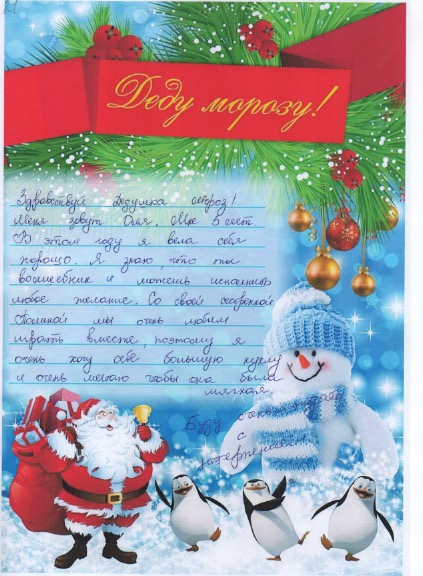 Деду морозу!
Здравствуй Дедушка мороз!
Меня зовут Оля. Мне 5 лет.
В этом году я вела себя
хорошо. Я знаю, что ты
волшебник и можешь исполнить
любое желание. Со своей сестренкой
Полиной мы очень любим
играть вместе, поэтому я
очень хочу себе большую куклу
и очень мечтаю чтобы она была
мягкая.
Буду очень ждать
с
нетерпением